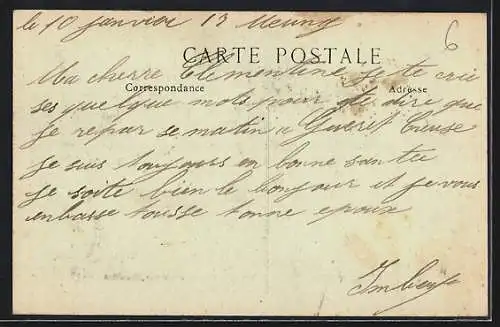 le 10 janvier 13 Meung
6
CARTE POSTALE
Ma cherre Clementine je te crie
Correspondance Adresse
ses quelque mots pour te dire que
je repar se matin a Gueret Creuse
je suis toujours en bonne santee
je soite bien le bonjour et je vous
enbasse tousse tonne epoux